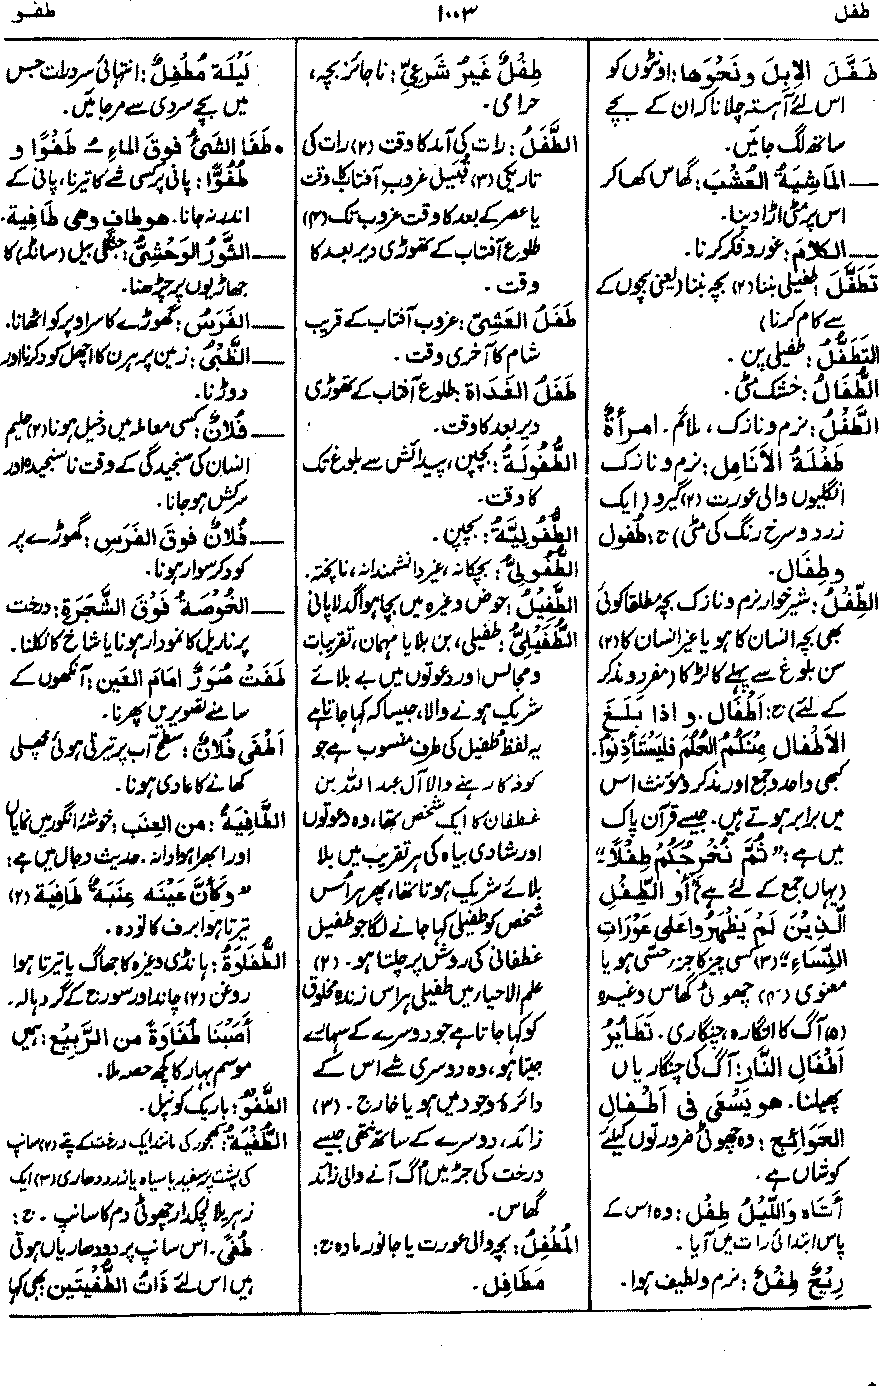 طفل
١٠٠٣
طفـو
طَفَّلَ الإبِلَ ونَحْوَها: اونٹوں کو
اس لئے آہستہ چلانا کہ ان کے بچے
ساتھ لگ جائیں۔
— المَاشِيَةُ العُشْبَ: گھاس کھا کر
اس پر مٹی اڑا دینا۔
— الكلامَ: غور و فکر کرنا۔
تَطَفَّلَ: طفیلی بننا (۲) بچہ بننا (یعنی بچوں کے
سے کام کرنا)
التَطَفُّلُ: طفیلی پن۔
الطُّفَالُ: خشک مٹی۔
الطَّفْلُ: نرم و نازک، ملائم۔ امرأةٌ
طَفْلَةُ الأنَامِل: نرم و نازک
انگلیوں والی عورت (۲) گیرو (ایک
زرد و سرخ رنگ کی مٹی) ج: طُفول
وطِفَال۔
الطِّفْلُ: شیر خوار نرم و نازک بچہ مطلقاً کوئی
بھی بچہ انسان کا ہو یا غیر انسان کا (۲)
سن بلوغ سے پہلے کا لڑکا (مفرد و مذکر
کے لئے) ج: أطْفَال۔ و اذا بَلَغَ
الأطْفَال مِنْكُمُ الحُلُمَ فليَسْتَأذِنُوا۔
کبھی واحد و جمع اور مذکر و مؤنث اس
میں برابر ہوتے ہیں۔ جیسے قرآن پاک
میں ہے: "ثُمَّ نُخْرِجُكُمْ طِفْلاً"
(یہاں جمع کے لئے ہے) "أو الطِّفْلِ
الَّذِيْنَ لَمْ يَظْهَرُوا عَلى عَوْرَاتِ
النِّسَاءِ" (۳) کسی چیز کا جزء حسّی ہو یا
معنوی (۴) چھوٹی گھاس وغیرہ
(۵) آگ کا انگارہ، چنگاری۔ تَطَايُرُ
أطْفَالِ النَّار: آگ کی چنگاریاں
پھیلنا۔ هو يَسْعَى فى أطْفال
الحَوائِج: وہ چھوٹی ضرورتوں کیلئے
کوشاں ہے۔
أتَاه وَاللَّيْلُ طِفْل: وہ اس کے
پاس ابتدائی رات میں آیا۔
رِيْحٌ طِفْلٌ: نرم و لطیف ہوا۔
طِفْلٌ غَيْرُ شَرْعِيّ: ناجائز بچہ،
حرامی۔
الطَّفَلُ: رات کی آمد کا وقت (۲) رات کی
تاریکی (۳) قُبیل غروب آفتاب کا وقت
یا عصر کے بعد کا وقت غروب تک (۴)
طلوع آفتاب کے تھوڑی دیر بعد کا
وقت۔
طَفَلُ العَشِيّ: غروب آفتاب کے قریب
شام کا آخری وقت۔
طَفَلُ الغَدَاة: طلوع آفتاب کے تھوڑی
دیر بعد کا وقت۔
الطُّفُولَةُ: بچپن، پیدائش سے بلوغ تک
کا وقت۔
الطُّفُولِيَّةُ: بچپن۔
الطُّفُولِيُّ: بچکانہ، غیر دانشمندانہ، ناپختہ۔
الطَّفِيْلُ: حوض وغیرہ میں بچا ہوا گدلا پانی
الطُّفَيْلِيُّ: طفیلی، بن بلایا مہمان، تقریبات
و مجالس اور دعوتوں میں بے بلائے
شریک ہونے والا، جیسا کہ کہا جاتا ہے
یہ لفظ طُفیل کی طرف منسوب ہے جو
کوفہ کا رہنے والا آل عبد اللہ بن
غطفان کا ایک شخص تھا، وہ دعوتوں
اور شادی بیاہ کی ہر تقریب میں بلا
بلائے شریک ہوتا تھا، پھر ہر اُس
شخص کو طفیلی کہا جانے لگا جو طفیل
غطفانی کی روش پر چلتا ہو۔ (۲)
علم الاحیاء میں طفیلی ہر اس زندہ مخلوق
کو کہا جاتا ہے جو دوسرے کے سہارے
جیتا ہو، وہ دوسری شے اس کے
دائرۂ وجود میں ہو یا خارج۔ (۳)
زائد، دوسرے کے ساتھ نتھی جیسے
درخت کی جڑ میں اُگ آنے والی زائد
گھاس۔
المُطْفِلُ: بچہ والی عورت یا جانور مادہ ج:
مَطَافِل۔
لَيْلَة مُطْفِلٌ: انتہائی سرد رات جس
میں بچے سردی سے مر جائیں۔
• طَفَا الشَئُ فوقَ الماءِ ـُ طَفْوًا و
طُفُوًّا: پانی پر کسی شے کا تیرنا، پانی کے
اندر نہ جانا۔ هو طافٍ وهي طَافِية۔
— الثَّوْرُ الوَحْشِيُّ: جنگلی بیل (سانڈ) کا
جھاڑیوں پر چڑھنا۔
— الفَرَسُ: گھوڑے کا سر اوپر کو اٹھانا۔
— الظَّبْيُ: زمین پر ہرن کا اچھل کود کرنا اور
دوڑنا۔
— فُلانٌ: کسی معاملہ میں دخیل ہونا (۲) حلیم
انسان کی سنجیدگی کے وقت ناسنجیدہ اور
سرکش ہو جانا۔
— فُلانٌ فوقَ الفَرَسِ: گھوڑے پر
کود کر سوار ہونا۔
— الخُوْصَةُ فَوْقَ الشَّجَرَةِ: درخت
پر ناریل کا نمودار ہونا یا شاخ کا نکلنا۔
طَفَتْ صُوَرٌ امَامَ العَين: آنکھوں کے
سامنے تصویریں پھرنا۔
أطْفَى فُلانٌ: سطح آب پر تیرتی ہوئی مچھلی
کھانے کا عادی ہونا۔
الطَّافِيَةُ: من العِنَب: خوشۂ انگور میں نمایاں
اور ابھرا ہوا دانہ۔ حدیث دجال میں ہے:
"وكَأنَّ عَيْنَه عِنَبَةٌ طَافِيَة" (۲)
تیرتا ہوا برف کا تودہ۔
الطُّفَاوَةُ: ہانڈی وغیرہ کا جھاگ یا تیرتا ہوا
روغن (۲) چاند اور سورج کے گرد ہالہ۔
أصَبْنَا طُفَاوَةً من الرَّبِيْع: ہمیں
موسم بہار کا کچھ حصہ ملا۔
الطَّفْوُ: باریک کونپل۔
الطُّفْيَةُ: کھجور کی مانند ایک درخت کے پتے (۲) سانپ
کی پشت پر سفید یا سیاہ یا زرد دھاری (۳) ایک
زہریلا لچکدار چھوٹی دم کا سانپ۔ ج:
طُفًى۔ اس سانپ پر دو دھاریاں ہوتی
ہیں اس لئے ذَاتُ الطُّفْيَتَيْن بھی کہا